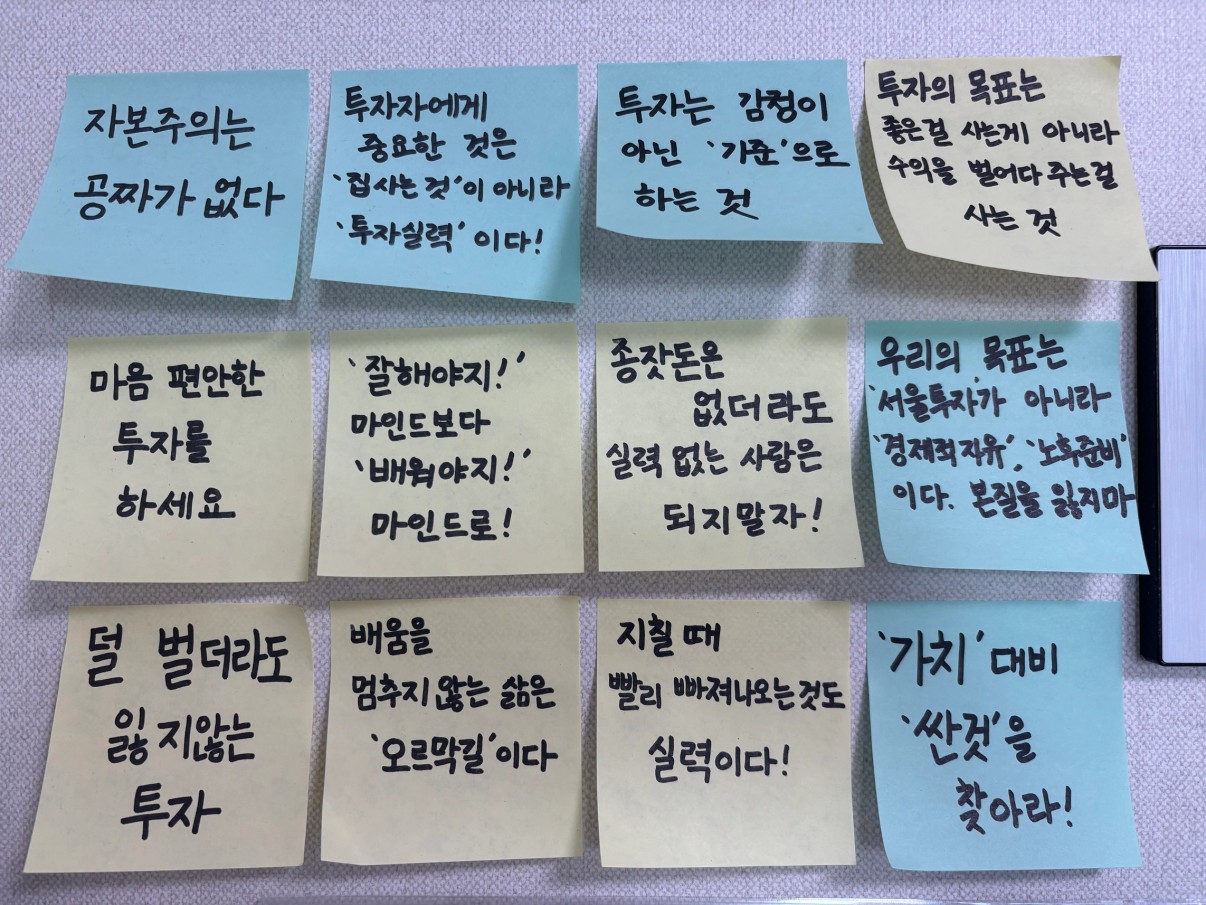 자본주의는
공짜가 없다
투자자에게
중요한 것은
'집 사는 것'이 아니라
'투자실력'이다!
투자는 감정이
아닌 '기준'으로
하는 것
투자의 목표는
좋은걸 사는게 아니라
수익을 벌어다 주는걸
사는 것
마음 편안한
투자를
하세요
'잘해야지!'
마인드보다
'배워야지!'
마인드로!
종잣돈은
없더라도
실력 없는 사람은
되지말자!
우리의 목표는
'서울투자가 아니라
'경제적자유', '노후준비'
이다. 본질을 잃지마
덜 벌더라도
잃지않는
투자
배움을
멈추지 않는 삶은
'오르막길'이다
지칠 때
빨리 빠져나오는것도
실력이다!
'가치' 대비
'싼것'을
찾아라!